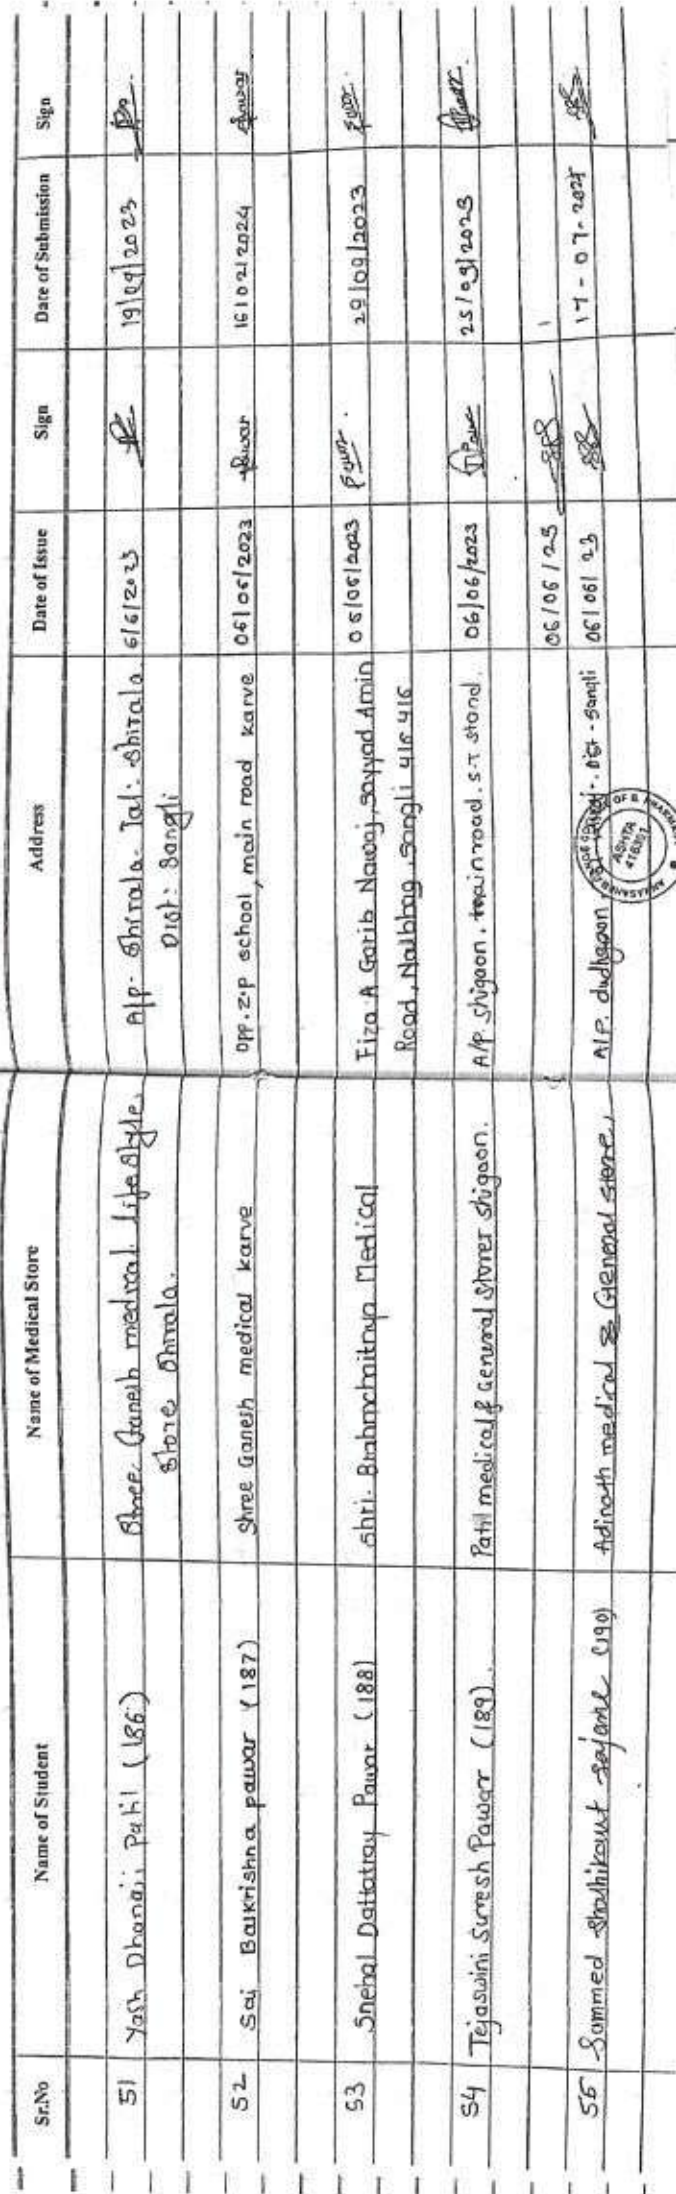 Sr.No Name of Student Name of Medical Store Address Date of Issue Sign Date of Submission Sign
51 Yash Dhanaji Patil (186) Shree Ganesh medical life style, A/p- Shirala- Tal:- Shirala 6/6/2023 19/09/2023
Store Shirala. Dist:- Sangli
52 Sai Balkrishna pawar (187) Shree Ganesh medical karve opp. z.p school, main road karve 06/06/2023 Pawar 16/02/2024 Pawar
53 Snehal Dattatray Pawar (188) Shri. Medical Fiza A Garib Nawaj, Sayyad Amin 06/06/2023 29/09/2023
Road, Nalbhag, Sangli 416 416
54 Tejaswini Suresh Pawar (189). Patil medical & General Storer shigaon. A/P. shigaon. road. S.T stand. 06/06/2023 25/09/2023
06/06/23
55 Sammed Shashikant (190) Adinath medical & General store, A/P. dudhgaon, Dist - Sangli 06/06/23 17-07-
ASHTA
416301